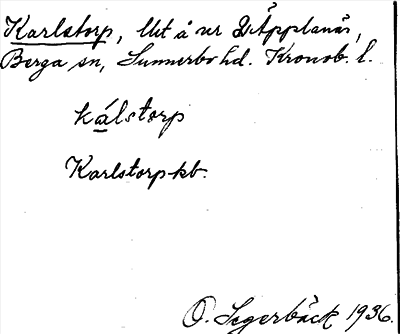 Karlstorp, lht å nr 2 Äpplanäs,
Berga sn, Sunnerbo hd. Kronob. l.
kálstorp
Karlstorp kb.
O. Segerbäck 1936.